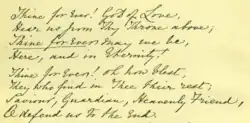 Thine for Ever! God of Love,
Hear us from Thy Throne above,
Thine for Ever may we be,
Here, and in Eternity.
Thine for Ever! oh how blest,
They who find in Thee their rest,
Saviour, Guardian, Heavenly Friend,
O defend us to the End